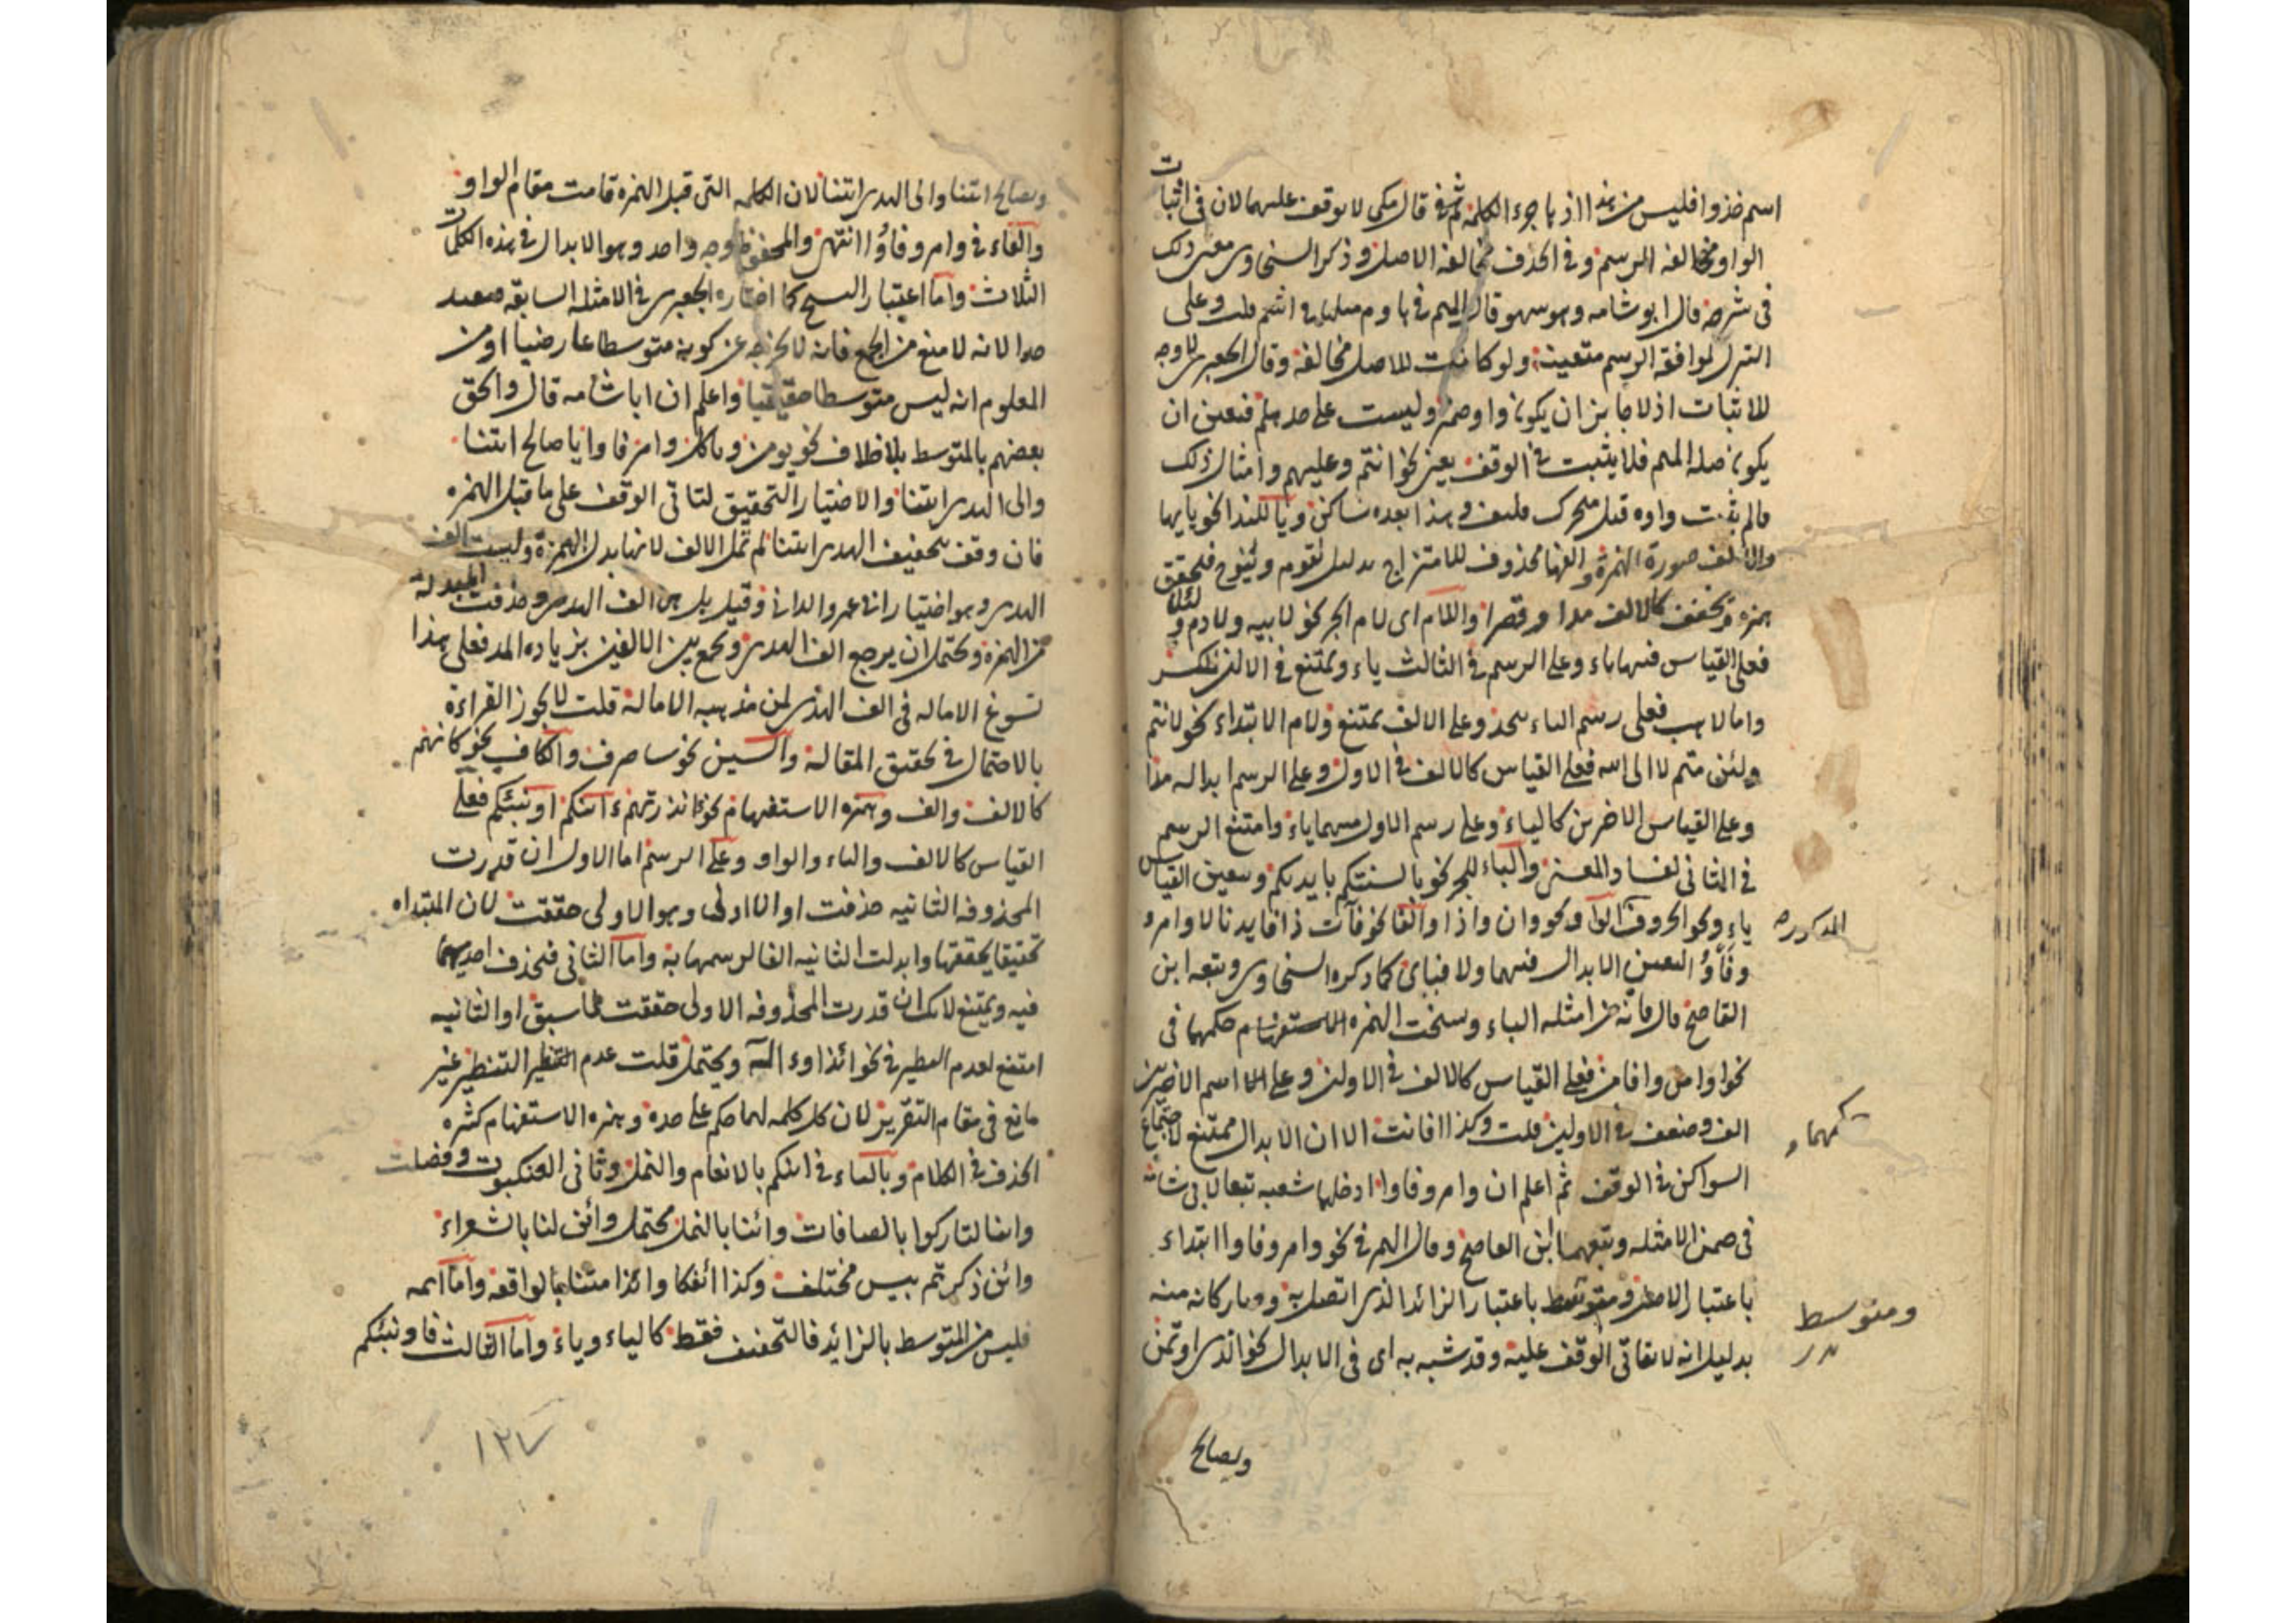 اسم خذوا فليس من هذا اذ ها جزء الكلمة ثم قال مكي لا يوقف عليهما لان في اثبات
الواو مخالفة الرسم وفي الحذف مخالفة الاصل وذكر السخاوي معنى ذلك
في شرحه قال ابو شامه وهو سهو قال الميم في هاوم مثلها في انتم قلت وعلى
التنزل لموافقة الرسم متعينة ولو كانت للاصل مخالفة وقال الجعبري لا وجه
للاثبات اذ لا جائز ان يكون واو ضمير وليست على حد هلم فتعين ان
يكون صلة الميم فلا يثبت في الوقف يعني نحو انتم وعليهم وامثال ذلك
فالم يثبت واوه قبل متحرك فكيف وهذا بعده ساكن ويا للندا نحو يايها
والالف صورة الهمزة والفها محذوف للامتزاج بدليل يقوم وينوح فتحقق
همزه وتخفف كالالف مدا وقصرا واللام اى لام الجر نحو لابيه ولادم ولئلا
فعلى القياس فيها ياء وعلى الرسم في الثالث ياء ويمتنع في الاولين
واما لاهب فعلى رسم الياء يتحد وعلى الالف يمتنع ولام الابتداء نحو لانتم
ولئن متم لا الى الله فعلى القياس كالالف في الاول وعلى الرسم ابداله مدا
وعلى القياس الاخرين كالياء وعلى رسم الاول منهما ياء وامتنع الرسم
في الثاني لفساد المعنى والباء للجر نحو بالسنتكم بايديكم وتعين القياس
ياء ونحو الحروف الواو نحو وان واذا والفا نحو فآت ذا فايدنا لا وامر
المذكورة
وفأوا لتعين الابدال فيهما ولا فبأى كما ذكره السخاوي وتبعه ابن
القاصح قال فانه من امثلة الباء وسنحت الهمزه الاستفهام حكمهما في
نحو اوامن وافامن فعلى القياس كالالف في الاولين وعلى الاسم الاخرين
حكمهما و
الف وضعف في الاولين قلت وكذا افانت الا ان الابدال ممتنع لاجتماع
السواكن في الوقف ثم اعلم ان وامر وفاوا ادخلها شعبه تبعا لابى شامة
في ضمن الامثلة وتبعهما ابن القاصح وقال الهمز في نحو وامر وفاوا ابتداء
باعتبار الاصل ومتوسط باعتبار الزائد الذى اتصل به وصار كانه منه
ومتوسط
بدليل انه لا يتاتى الوقف عليه وقد شبه به اى في الابدال نحو الذى اوتمن
ويصالح
ويصالح ائتنا والى الهدى ائتنا لان الكلمه التى قبل الهمزه قامت مقام الواو
والفاء في وامر وفاوا انتهى والمحفوظ وجه واحد وهو الابدال في هذه الكلمات
الثلاث واما اعتبار كما اختاره الجعبرى في الامثلة السابقه فبعيد
جدا لانه لا منع من الجمع فانه لا يخرجه عن كونه متوسطا عارضيا اومن
المعلوم انه ليس متوسطا حقيقيا واعلم ان اباشامه قال والحق
بعضهم بالمتوسط بلا خلاف نحو يومن وياكل وامر فاوا يا صالح ائتنا
والى الهدى ائتنا والاختيار التحقيق لتاتى الوقف على ما قبل الهمزه
فان وقف بتخفيف الهدى ائتنا لم تمل الالف لانها بدل الهمزة وليست الف
الهدى وهو اختيار ابى عمرو الدانى وقيل بل هى الف الهدى وحذفت المبدلة
من الهمزة ويحتمل ان يرجع الف الهدى ويجمع بين الالفين بزياده المد فعلى هذا
تسوغ الاماله في الف الهدى لمن مذهبه الامالة قلت لا يجوز القراءة
بالاحتمال في تحقيق المقالة والسين نحو ساصرف والكاف نحو كانهم
كالالف والف وهمزه الاستفهام نحو ءانذرتهم ءائنكم اونبئكم فعلى
القياس كالالف والياء والواو وعلى الرسم اما الاول ان قدرت
المحذوفه الثانيه حذفت او الاولى وهو الاولى حققت لان المبتداه
تحقيقا يحققها وابدلت الثانيه الفا لرسمها به واما الثانى فتحذف احديهما
فيه ويمتنع لانك ان قدرت المحذوفه الاولى حققت لما سبق او الثانيه
امتنع لعدم النظير في نحو ائذا وء اله ويحتمل قلت عدم التنظير غير
مانع في مقام التقرير لان كل كلمه لها حكم على حدة وهمزه الاستفهام كثره
الحذف في الكلام وبالياء في ائنكم بالانعام والنمل وثانى العنكبوت وفصلت
وائنا لتاركوا بالصافات وائنا بالنمل محتمل وائن لنا بالشعراء
وائن ذكرتم بيس مختلف وكذا ائفكا وائذا متنا بالواقعه واما ائمه
فليس من المتوسط بالزائد فالتخفيف فقط كالياء وياء واما الثالث فاونبئكم
١٢٧